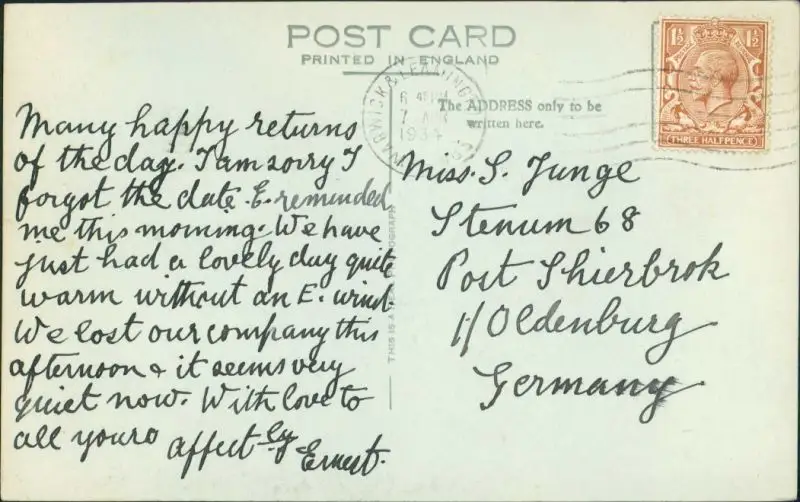 POST CARD
PRINTED IN ENGLAND
WARWICK & LEAMINGTON
6
7
1934
The ADDRESS only to be
written here.
1½ 1½
THREE HALFPENCE
Many happy returns
of the day. I am sorry I
forgot the date. E. reminded
me this morning. We have
just had a lovely day quite
warm without an E. wind.
We lost our company this
afternoon & it seems very
quiet now. With love to
all yours affectly
Ernest.
THIS IS A REAL PHOTOGRAPH
Miss. S. Junge
Stenum 68
Post Shierbrok
i/Oldenburg
Germany